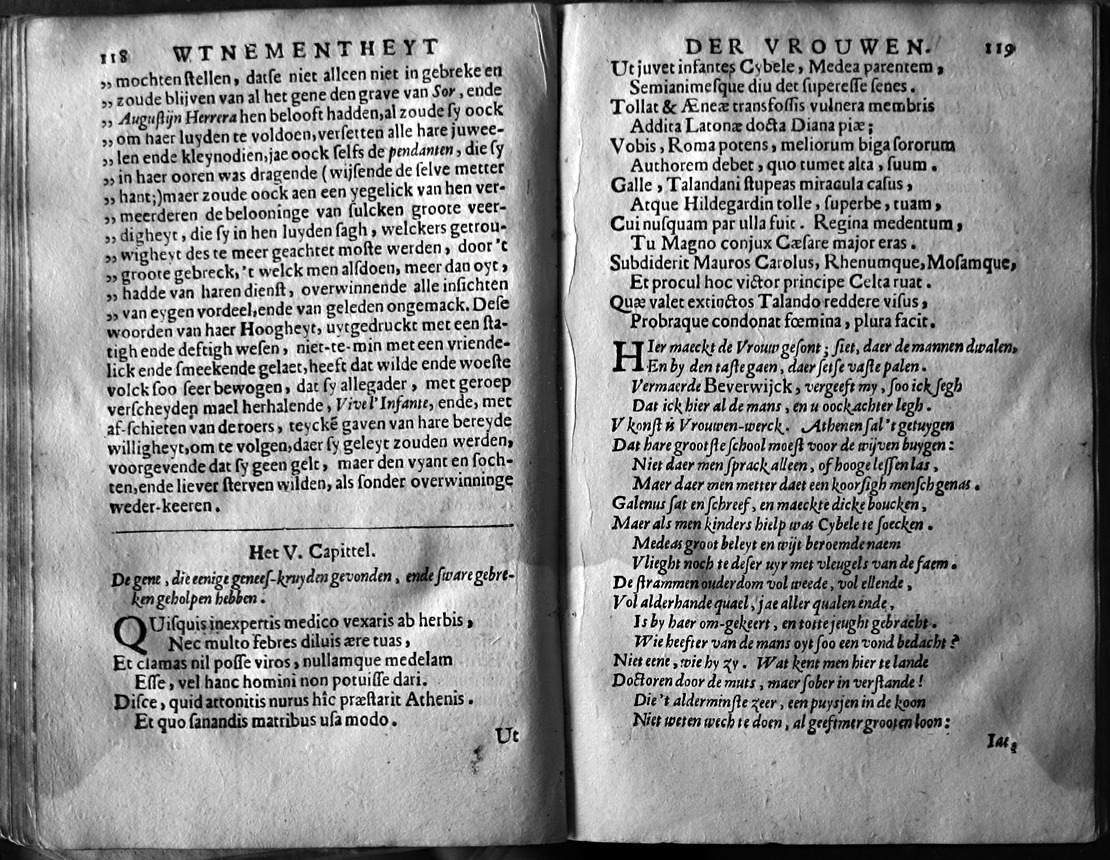 118 WTNEMENTHEYT
„ mochten ſtellen, datſe niet alleen niet in gebreke en
„ zoude blijven van al het gene den grave van Sor, ende
„ Auguſtijn Herrera hen belooft hadden, al zoude ſy oock
„ om haer luyden te voldoen, verſetten alle hare juwee-
„ len ende kleynodien, jae oock ſelfs de pendanten, die ſy
„ in haer ooren was dragende (wijſende de ſelve metter
„ hant;) maer zoude oock aen een yegelick van hen ver-
„ meerderen de belooninge van ſulcken groote veer-
„ digheyt, die ſy in hen luyden ſagh, welckers getrou-
„ wigheyt des te meer geachtet moſte werden, door 't
„ groote gebreck, 't welck men alſdoen, meer dan oyt,
„ hadde van haren dienſt, overwinnende alle inſichten
„ van eygen vordeel, ende van geleden ongemack. Deſe
woorden van haer Hoogheyt, uytgedruckt met een ſta-
tigh ende deftigh weſen, niet-te-min met een vriende-
lick ende ſmeekende gelaet, heeft dat wilde ende woeſte
volck ſoo ſeer bewogen, dat ſy allegader, met geroep
verſcheyden mael herhalende, Vive l'Infante, ende, met
af-ſchieten van de roers, teyckē gaven van hare bereyde
willigheyt, om te volgen, daer ſy geleyt zouden werden,
voorgevende dat ſy geen gelt, maer den vyant en ſoch-
ten, ende liever ſterven wilden, als ſonder overwinninge
weder-keeren.
Het V. Capittel.
De gene, die eenige geneeſ-kruyden gevonden, ende ſware gebre-
ken geholpen hebben.
QUiſquis inexpertis medico vexaris ab herbis,
Nec multo febres diluis ære tuas,
Et clamas nil poſſe viros, nullamque medelam
Eſſe, vel hanc homini non potuiſſe dari.
Diſce, quid attonitis nurus hîc præſtarit Athenis.
Et quo ſanandis matribus uſa modo.
Ut
DER VROUWEN. 119
Ut juvet infantes Cybele, Medea parentem,
Semianimeſque diu det ſupereſſe ſenes.
Tollat & Æneæ transfoſſis vulnera membris
Addita Latonæ docta Diana piæ;
Vobis, Roma potens, meliorum biga ſororum
Authorem debet, quo tumet alta, ſuum.
Galle, Talandani ſtupeas miracula caſus,
Atque Hildegardin tolle, ſuperbe, tuam,
Cui nuſquam par ulla fuit. Regina medentum,
Tu Magno conjux Cæſare major eras.
Subdiderit Mauros Carolus, Rhenumque, Moſamque,
Et procul hoc victor principe Celta ruat.
Quæ valet extinctos Talando reddere viſus,
Probraque condonat fœmina, plura facit.
HIer maeckt de Vrouw geſont; ſiet, daer de mannen dwalen,
En by den taſte gaen, daer ſetſe vaſte palen.
Vermaerde Beverwijck, vergeeft my, ſoo ick ſegh
Dat ick hier al de mans, en u oock achter legh.
V konſt is Vrouwen-werck. Athenen ſal 't getuygen
Dat hare grootſte ſchool moeſt voor de wijven buygen:
Niet daer men ſprack alleen, of hooge leſſen las,
Maer daer men metter daet een koorſigh menſch genas.
Galenus ſat en ſchreef, en maeckte dicke boucken,
Maer als men kinders hielp was Cybele te ſoecken.
Medeas groot beleyt en wijt beroemde naem
Vlieght noch te deſer uyr met vleugels van de faem.
De ſtrammen ouderdom vol weede, vol ellende,
Vol alderhande quael, jae aller qualen ende,
Is by haer om-gekeert, en totte jeught gebracht.
Wie heefter van de mans oyt ſoo een vond bedacht?
Niet eene, wie hy zy. Wat kent men hier te lande
Doctoren door de muts, maer ſober in verſtande!
Die 't alderminſte zeer, een puysjen in de koon
Niet weten wech te doen, al geeftmer grooten loon:
Iae